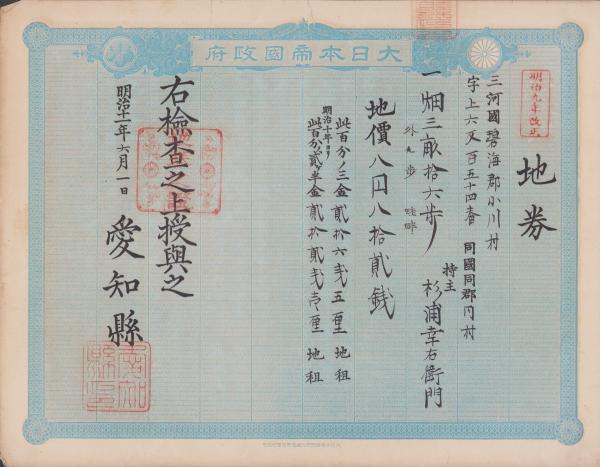 大日本帝國政府
明治九年改正
地券
三河國碧海郡小川村
字上六反百五十四番 同國同郡同村
持主 杉浦幸右衛門
一畑三畝拾六歩
外九歩 畦畔
地價八円八拾貳錢
此百分ノ三金貳拾六戋五厘 地租
明治十年ヨリ
此百分ノ貳ケ半金貳拾貳戋壱厘 地租
右檢查之上授與之
明治十一年六月一日
愛知縣
愛知縣印